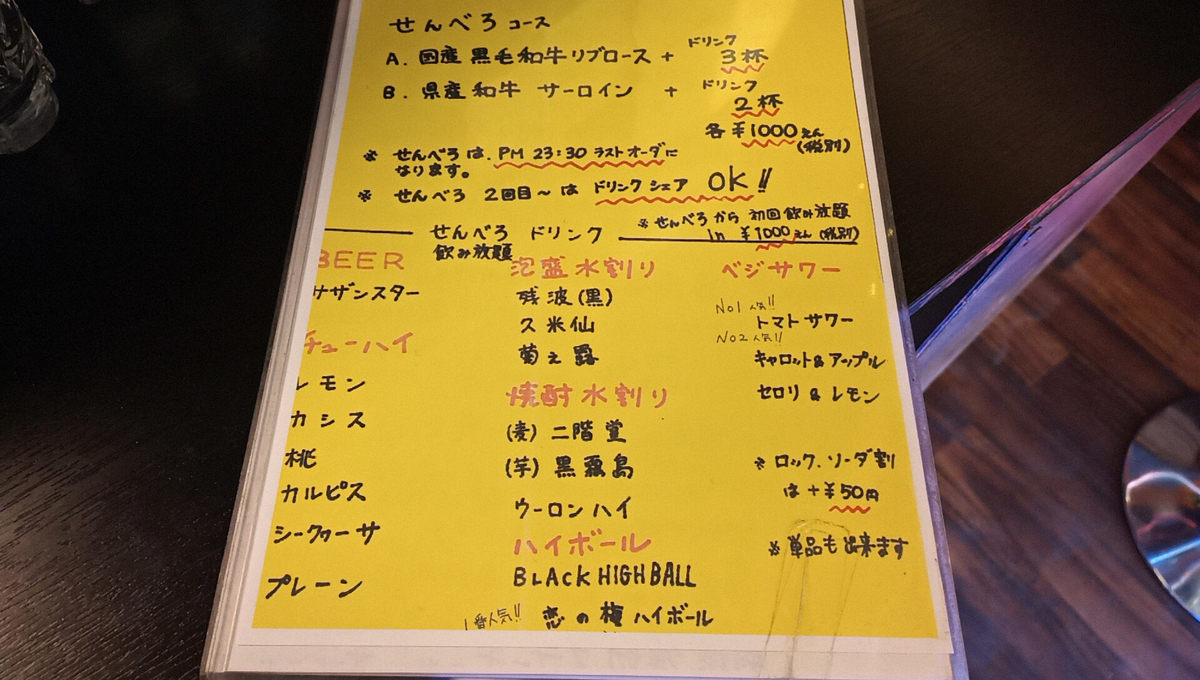 せんべろ コース
A. 国産 黒毛和牛リブロース + ドリンク 3杯
B. 県産 和牛 サーロイン + ドリンク 2杯
各 ¥1000えん (税別)
※ せんべろ は、PM 23:30 ラストオーダに
なります。
※ せんべろ 2回目〜は ドリンク シェア OK!!
せんべろ ドリンク
飲み放題
※せんべろから 初回飲み放題
in ¥1000えん (税別)
BEER
サザンスター
チューハイ
レモン
カシス
桃
カルピス
シークヮーサ
プレーン
泡盛水割り
残波(黒)
久米仙
菊之露
焼酎水割り
(麦) 二階堂
(芋) 黒霧島
ウーロンハイ
ハイボール
BLACK HIGHBALL
1番人気!! 恋の梅ハイボール
ベジサワー
No1 人気!!
トマトサワー
No2 人気!!
キャロット&アップル
セロリ & レモン
※ ロック、ソーダ割
は +¥50円
※ 単品も出来ます